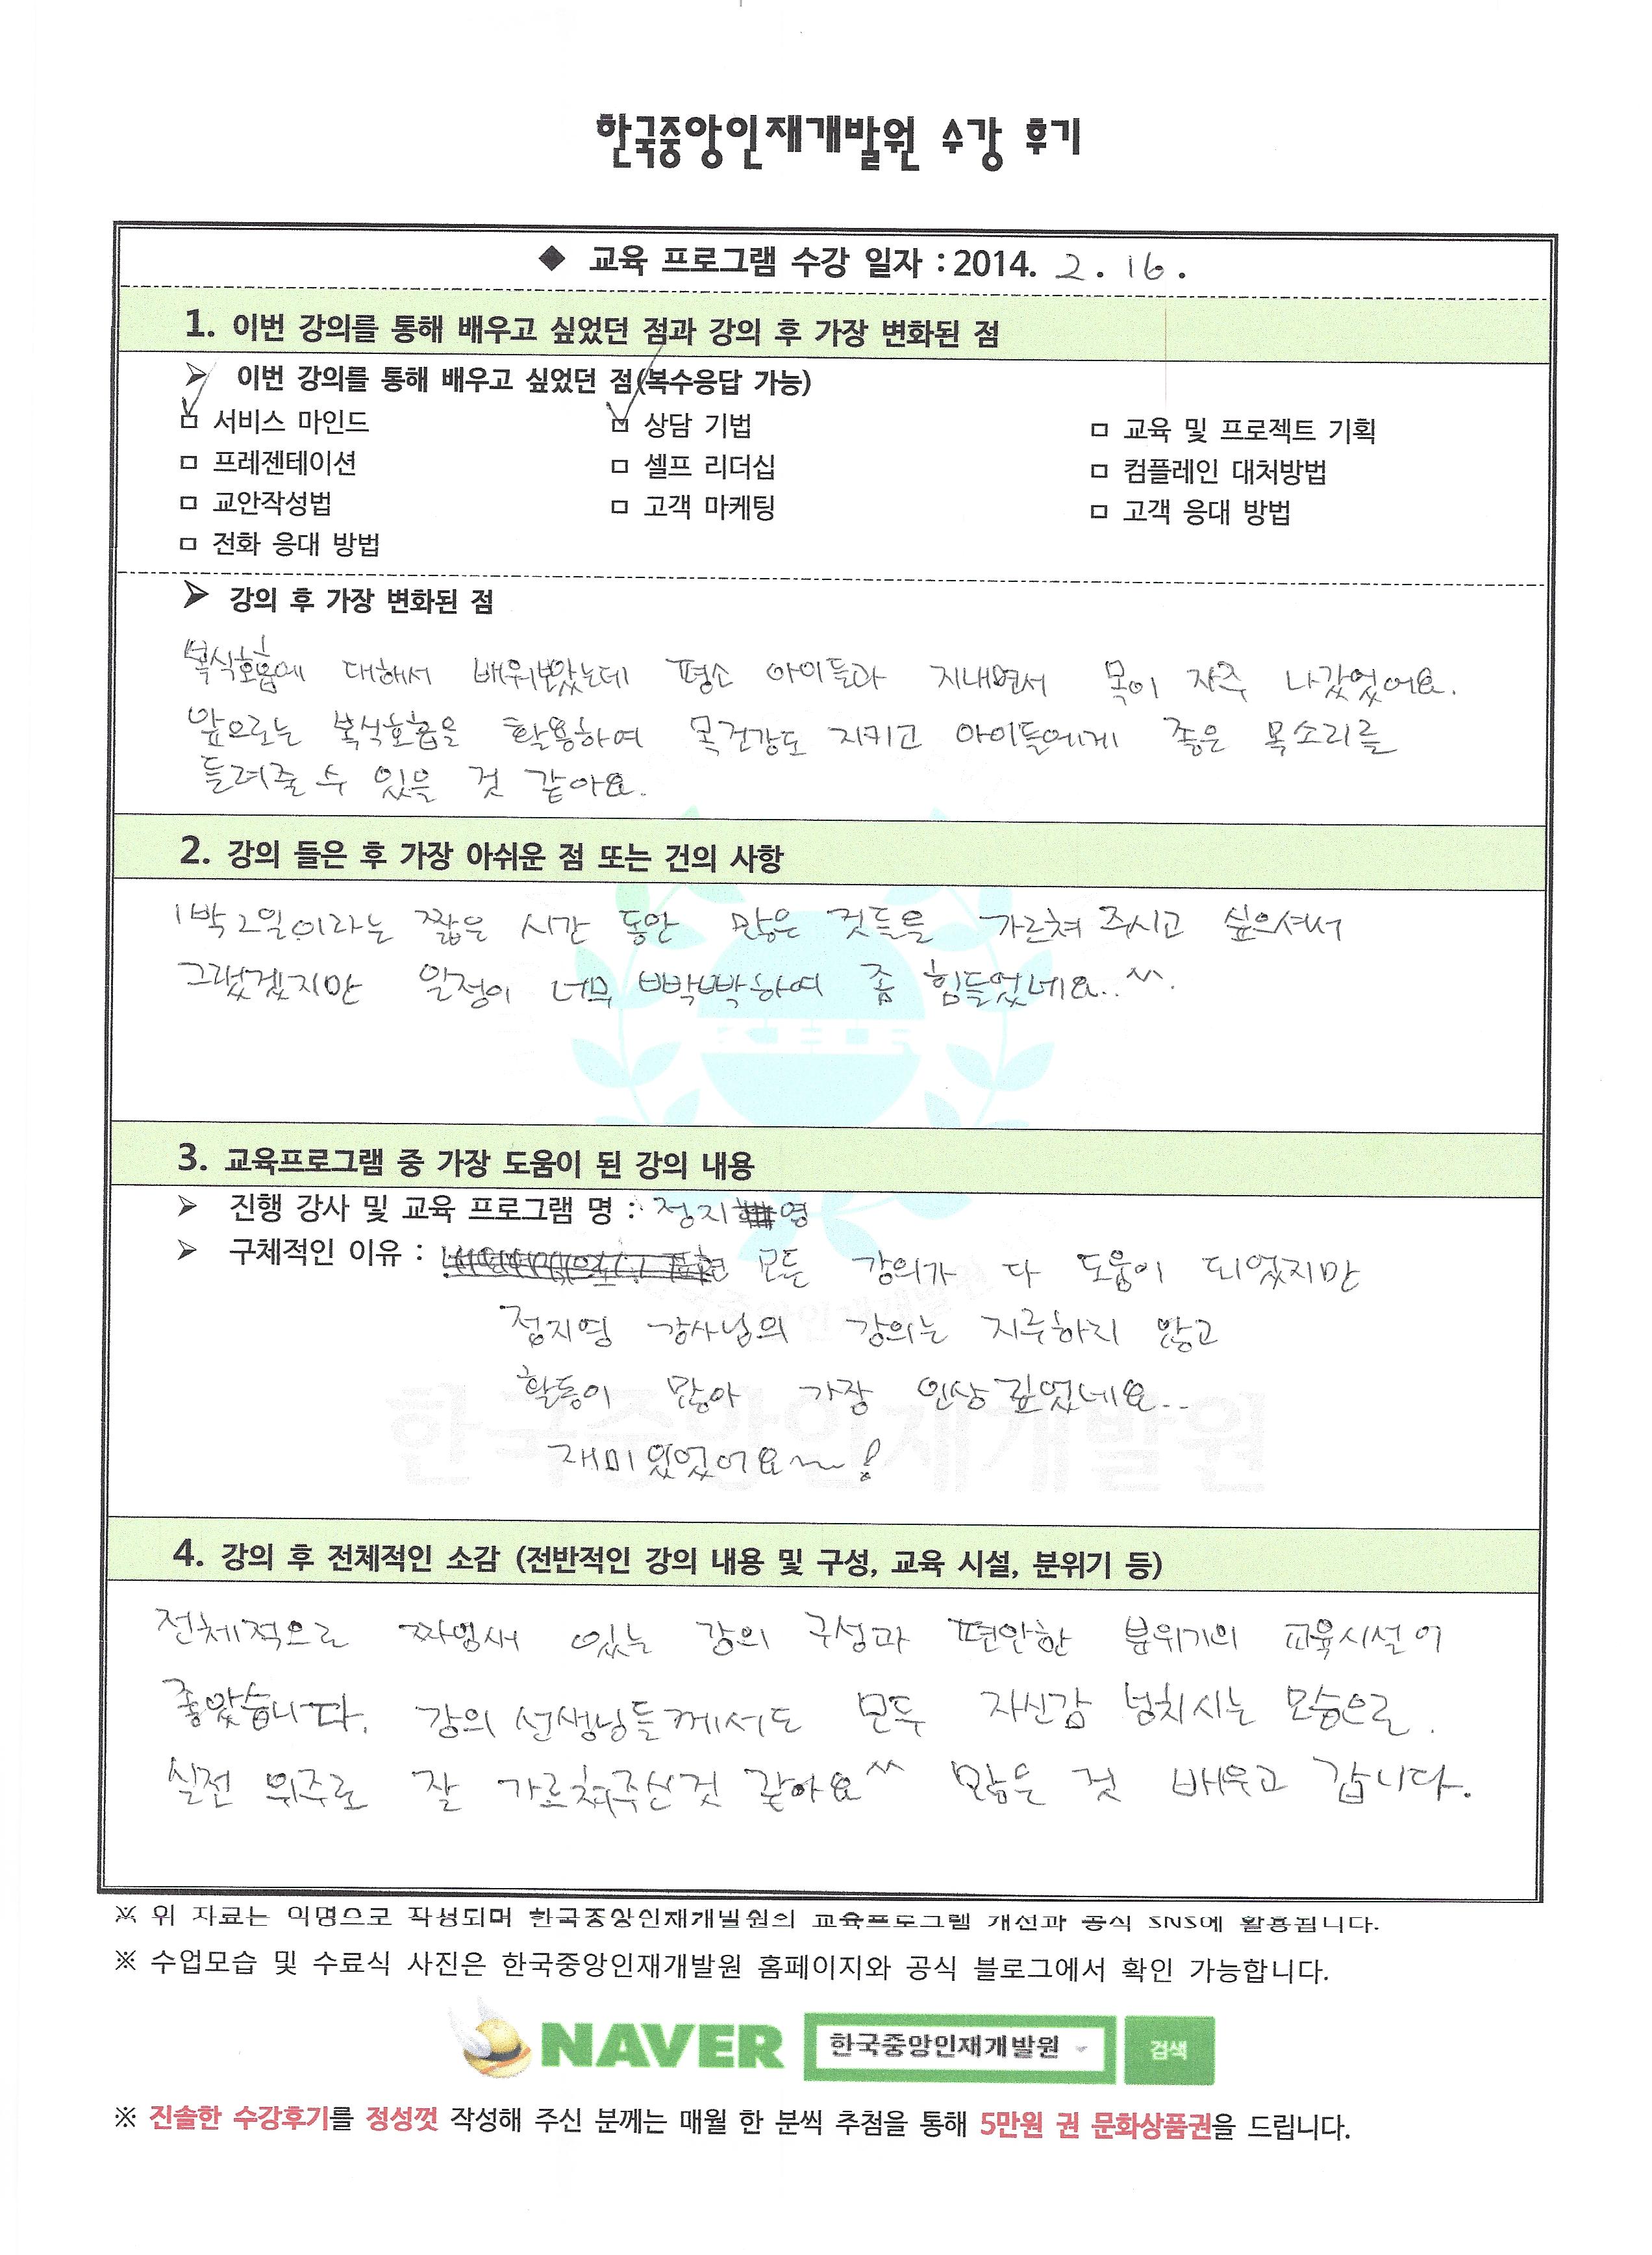 한국중앙인재개발원 수강 후기
◆ 교육 프로그램 수강 일자 : 2014. 2. 16.
1. 이번 강의를 통해 배우고 싶었던 점과 강의 후 가장 변화된 점
➢ 이번 강의를 통해 배우고 싶었던 점(복수응답 가능)
☑ 서비스 마인드 ☑ 상담 기법 □ 교육 및 프로젝트 기획
□ 프레젠테이션 □ 셀프 리더십 □ 컴플레인 대처방법
□ 교안작성법 □ 고객 마케팅 □ 고객 응대 방법
□ 전화 응대 방법
➢ 강의 후 가장 변화된 점
복식호흡에 대해서 배워보았는데 평소 아이들과 지내면서 목이 자주 나갔었어요.
앞으로는 복식호흡을 활용하여 목건강도 지키고 아이들에게 좋은 목소리를
들려줄 수 있을 것 같아요.
2. 강의 들은 후 가장 아쉬운 점 또는 건의 사항
1박2일이라는 짧은 시간 동안 많은 것들을 가르쳐 주시고 싶으셔서
그랬겠지만 일정이 너무 빡빡하여 좀 힘들었네요..^^.
3. 교육프로그램 중 가장 도움이 된 강의 내용
➢ 진행 강사 및 교육 프로그램 명 : 정지영
➢ 구체적인 이유 : 모든 강의가 다 도움이 되었지만
정지영 강사님의 강의는 지루하지 않고
활동이 많아 가장 인상 깊었네요..
재미있었어요~~!
한국중앙인재개발원
4. 강의 후 전체적인 소감 (전반적인 강의 내용 및 구성, 교육 시설, 분위기 등)
전체적으로 짜임새 있는 강의 구성과 편안한 분위기의 교육시설이
좋았습니다. 강의 선생님들께서도 모두 자신감 넘치시는 모습으로.
실전 위주로 잘 가르쳐주신것 같아요^^ 많은 것 배우고 갑니다.
※ 위 자료는 익명으로 작성되며 한국중앙인재개발원의 교육프로그램 개선과 공식 SNS에 활용됩니다.
※ 수업모습 및 수료식 사진은 한국중앙인재개발원 홈페이지와 공식 블로그에서 확인 가능합니다.
NAVER 한국중앙인재개발원 검색
※ 진솔한 수강후기를 정성껏 작성해 주신 분께는 매월 한 분씩 추첨을 통해 5만원 권 문화상품권을 드립니다.